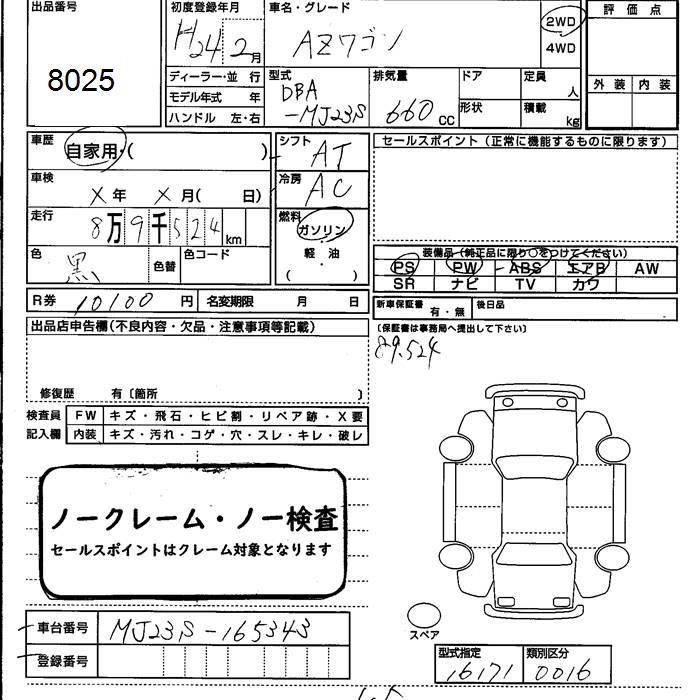 出品番号
8025
初度登録年月
H24 2月
車名・グレード
AZワゴン
2WD
4WD
評価点
外装 内装
ディーラー・並 行
モデル年式 年
ハンドル 左・右
型式
DBA
-MJ23S
排気量
660 cc
ドア
形状
定員
人
積載
kg
車歴
自家用・( )
車検
X年 X月( 日)
走行
8万9千524km
色
黒
色替
色コード
シフト
AT
冷房
AC
燃料
ガソリン
軽・油
( )
セールスポイント(正常に機能するものに限ります)
装備品(純正品に限り○をつけてください)
PS PW ABS エアB AW
SR ナビ TV カワ
R券 10100 円 名変期限 月 日
新車保証書
有・無
後日品
(保証書は事務局へ提出して下さい)
89.524
出品店申告欄(不良内容・欠品・注意事項等記載)
修復歴 有〔箇所 〕
検査員
記入欄
FW キズ・飛石・ヒビ割・リペア跡・X要
内装 キズ・汚れ・コゲ・穴・スレ・キレ・破レ
ノークレーム・ノー検査
セールスポイントはクレーム対象となります
スペア
車台番号 MJ23S-165343
登録番号
型式指定 類別区分
16171 0016